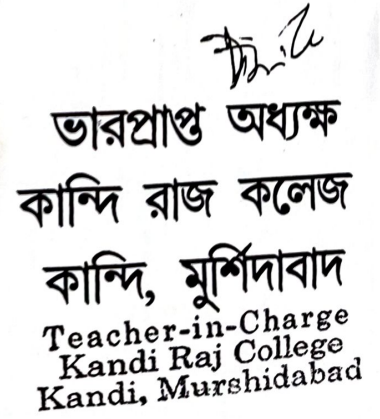 ভারপ্রাপ্ত অধ্যক্ষ
কান্দি রাজ কলেজ
কান্দি, মুর্শিদাবাদ
Teacher-in-Charge
Kandi Raj College
Kandi, Murshidabad